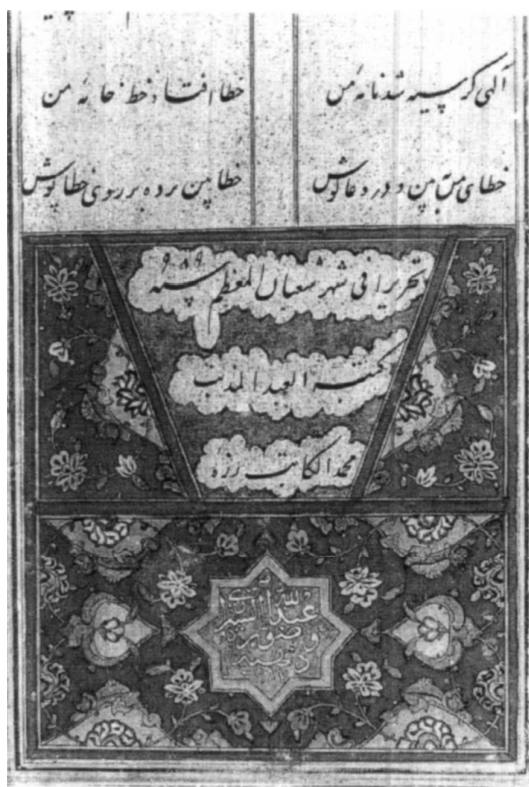 الهی کر سیه شد نامهٔ من خطا افتاد خط خامهٔ من
خطای من مبین و در دعا کوش خطا بین پرده بر روی خطا پوش
تحریرا فی شهر شعبان المعظم سنه ۹۸۹
کتبه العبد المذنب
محمد الکاتب رزه
عبدالله الشیرازی
صوره و ذهبه